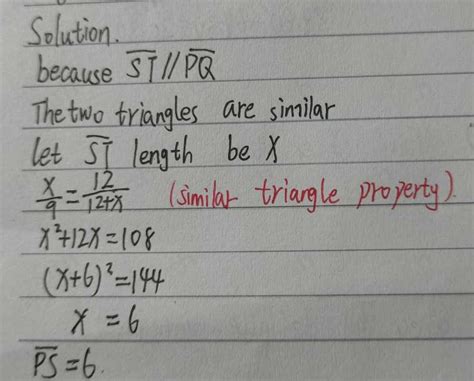 Solution.
because S̅T̅ // P̅Q̅
The two triangles are similar
let S̅T̅ length be X
x/9 = 12/12+x (similar triangle property).
x²+12x=108
(x+6)²=144
x = 6
P̅S̅=6.